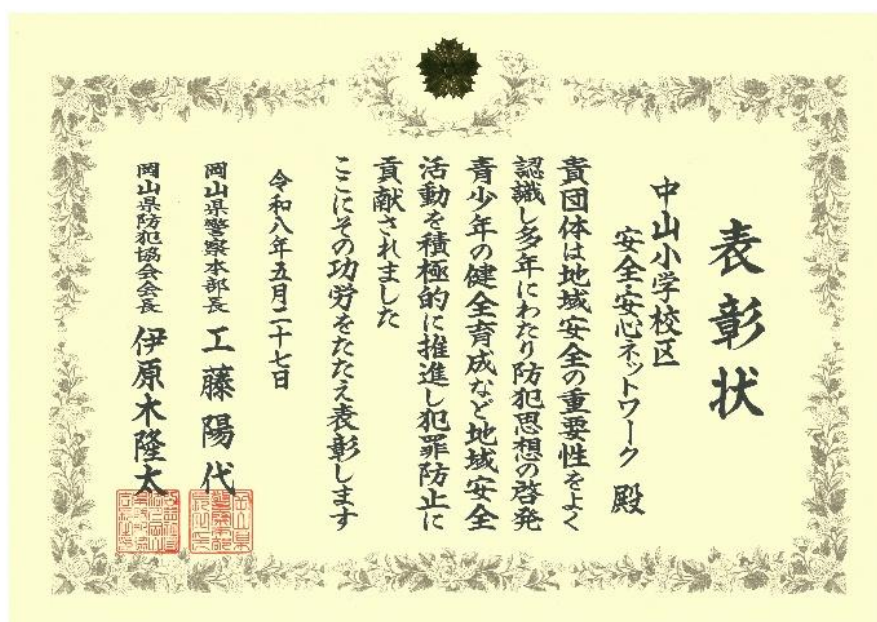 表彰状
中山小学校区
安全・安心ネットワーク 殿
貴団体は地域安全の重要性をよく
認識し多年にわたり防犯思想の啓発
青少年の健全育成など地域安全
活動を積極的に推進し犯罪防止に
貢献されました
ここにその功労をたたえ表彰します
令和八年五月二十七日
岡山県警察本部長 工藤陽代
岡山県防犯協会会長 伊原木隆太